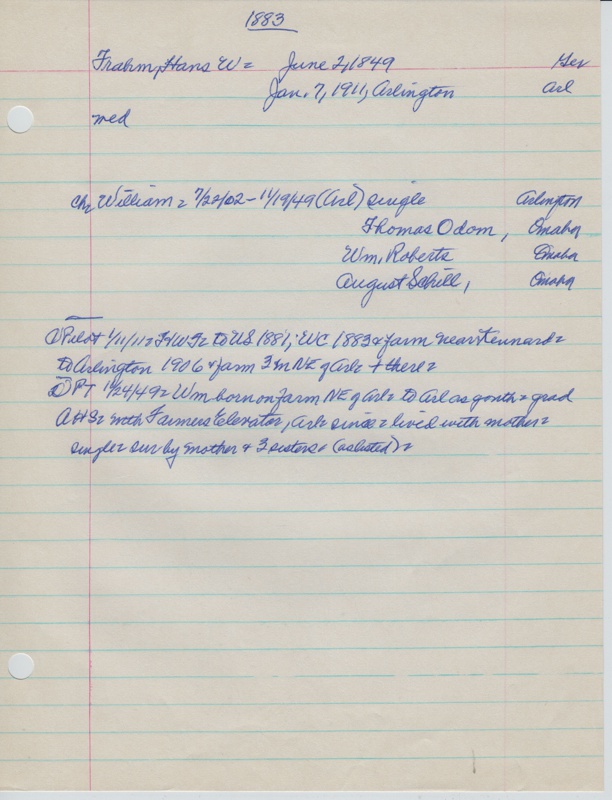 1883
Frahm, Hans W= June 2, 1849 Ger
Jan. 7, 1911, Arlington Arl
med
ch William = 7/22/02 - 11/19/49 (Arl) single Arlington
Thomas Odom, Omaha
Wm. Roberts Omaha
August Schill, Omaha
① Pilot 1/11/11 = HWF = to US 1881; WC 1883 & farm near Kennard =
to Arlington 1906 & farm 3 m NE of Arl = + there =
② PT 11/24/49 = Wm born on farm NE of Arl = to Arl as youth = grad
AHS = with Farmers Elevator, Arl = since = lived with mother =
single = sur by mother & 3 sisters = (as listed) =